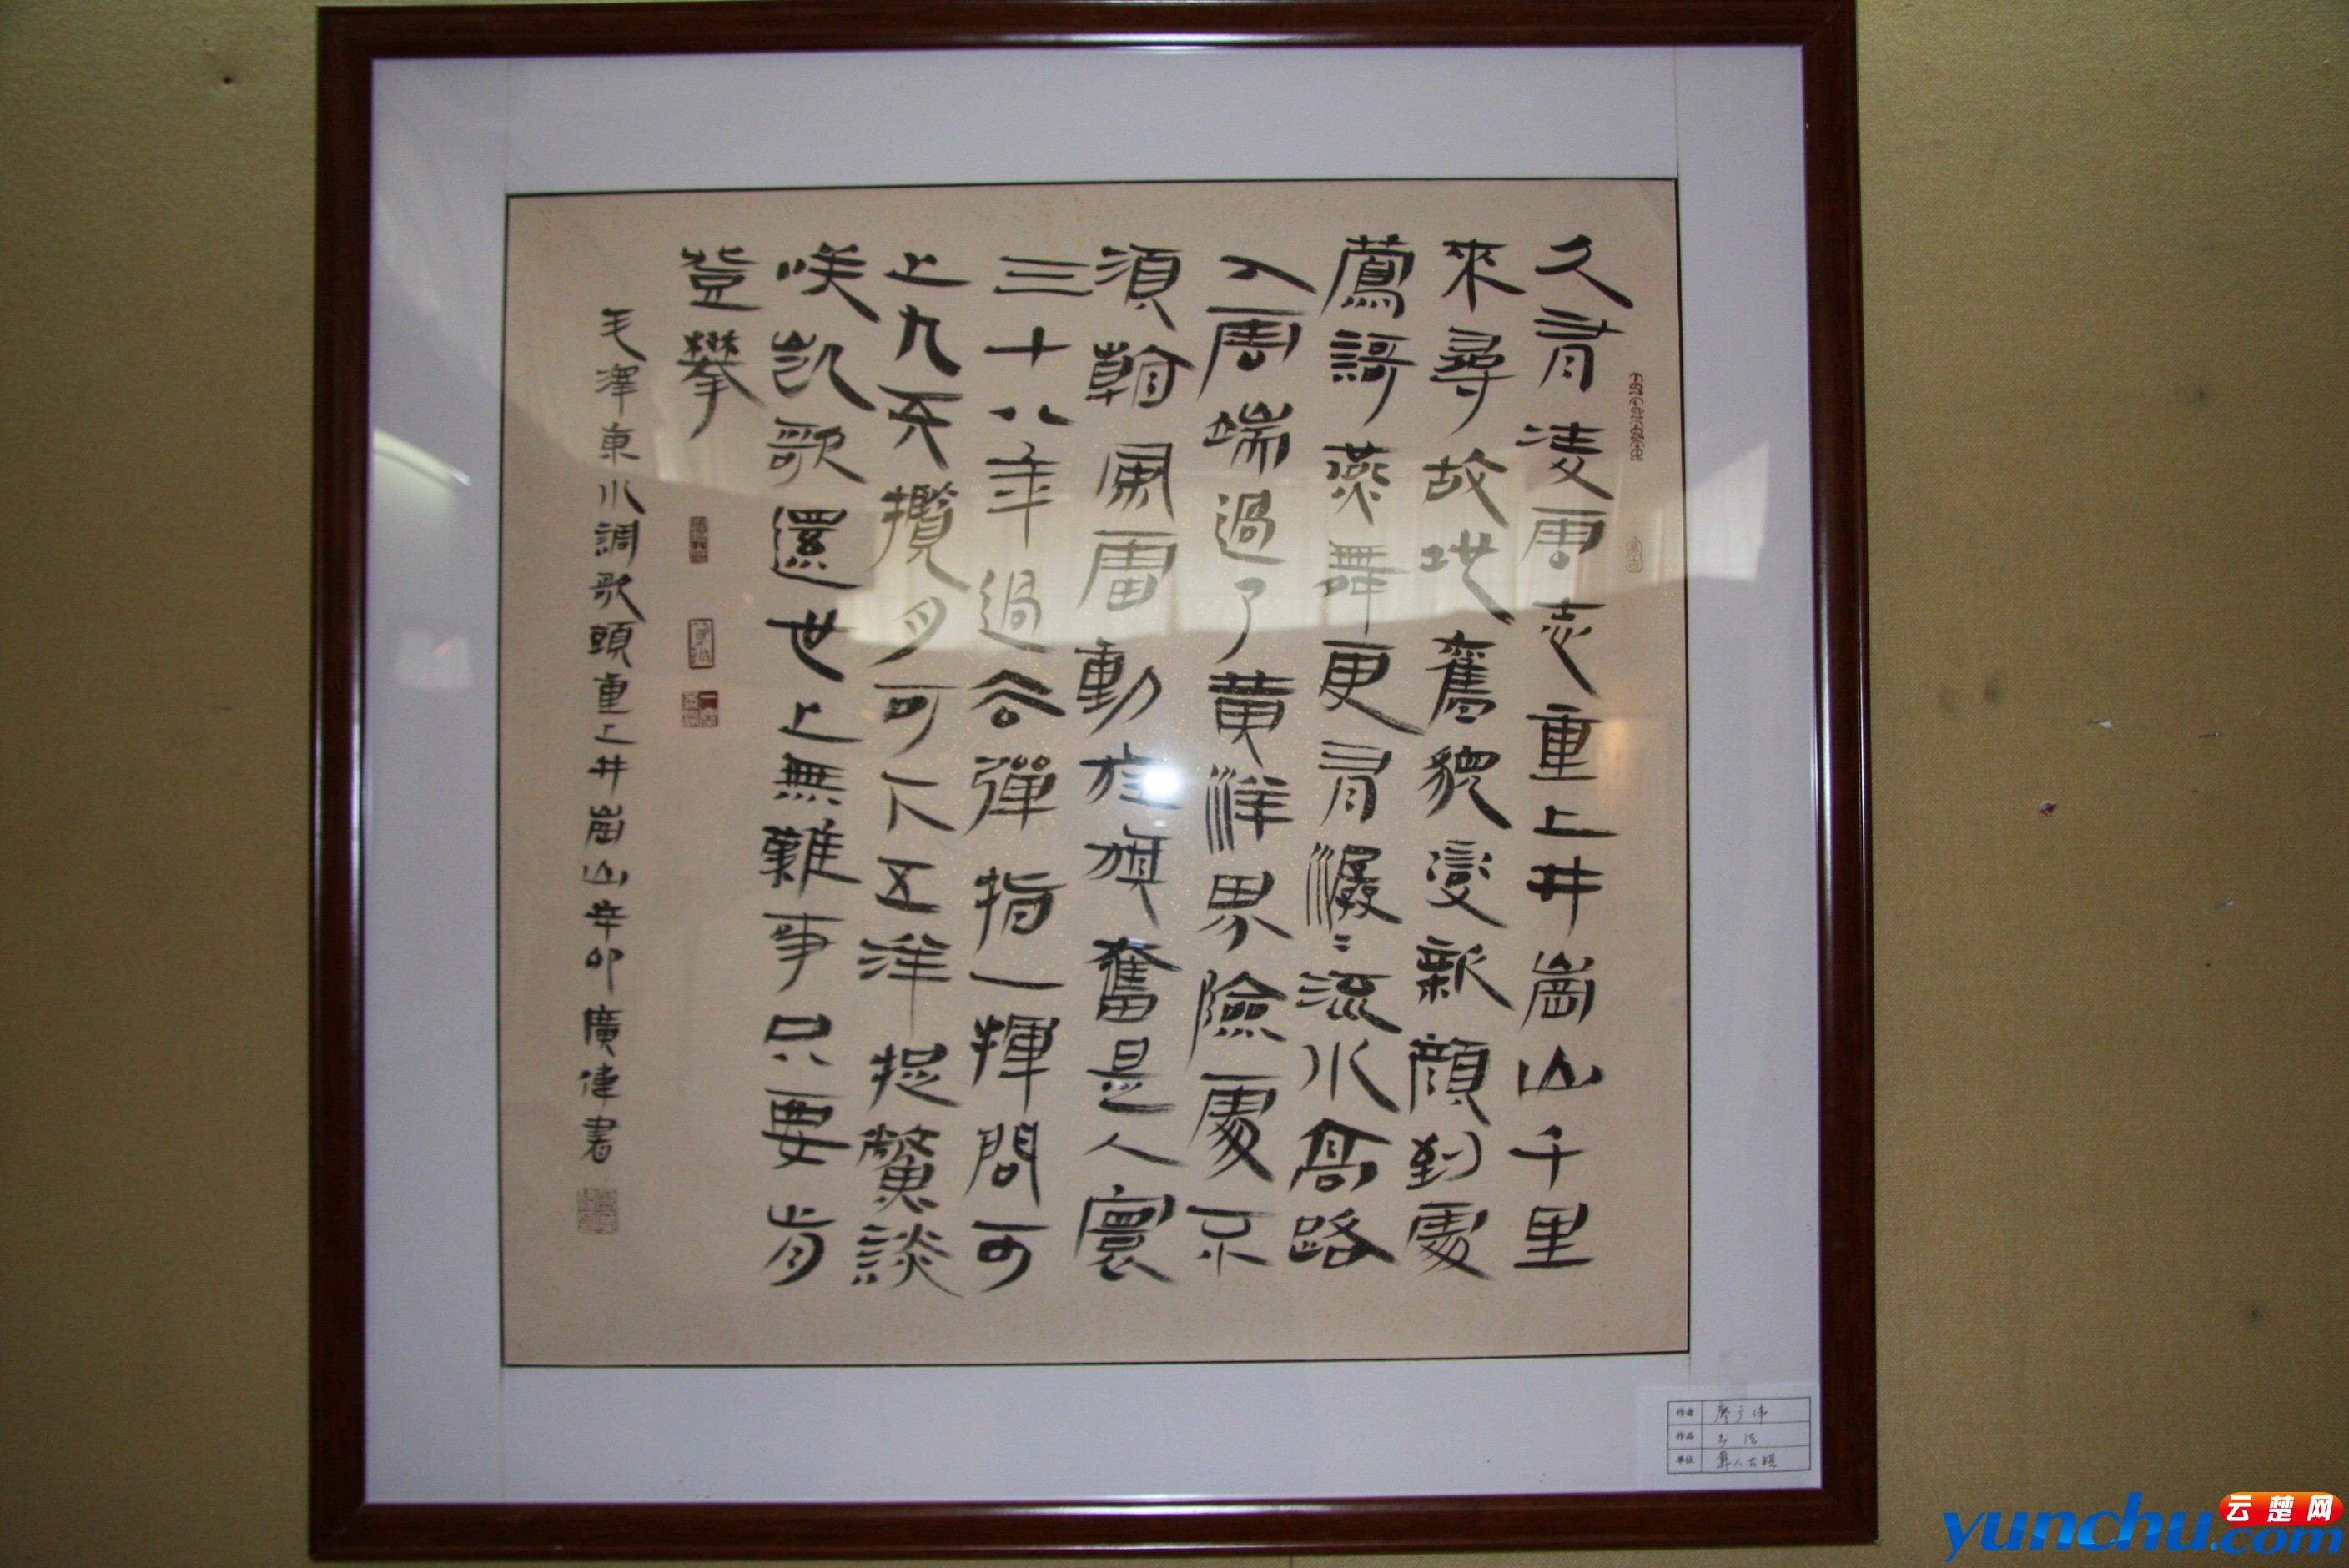 久有凌雲志重上井崗山千里
來尋故地舊貌變新顏到處
鶯謌燕舞更有潺々流水高路
入雲端過了黃洋界險處不
須看風雷動旌旗奮是人寰
三十八年過去彈指一揮間可
上九天攬月可下五洋捉鱉談
咲凱歌還世上無難事只要肯
登攀
毛澤東水調歌頭重上井崗山辛卯廣偉書
作者 廖广伟
作品 书法
单位
云楚网
yunchu.com